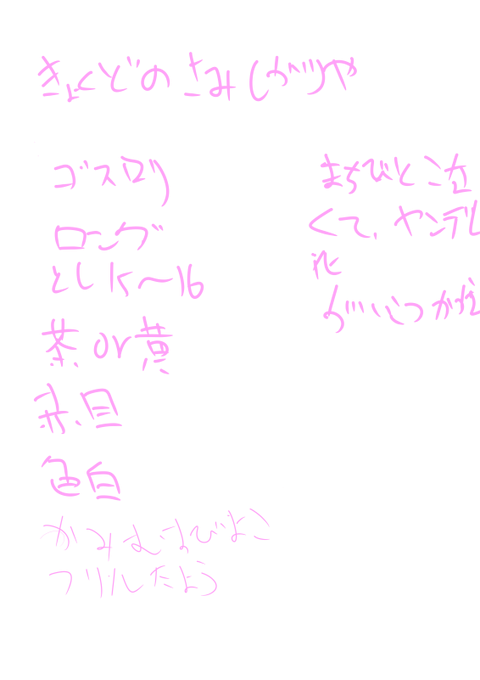 きょくどのさみしがりや
ゴスロリ
ロング
とし15〜16
茶or黄
赤目
色白
かみむすびよこ
フリルたよう
まちびとこ
くて、ヤンデレ